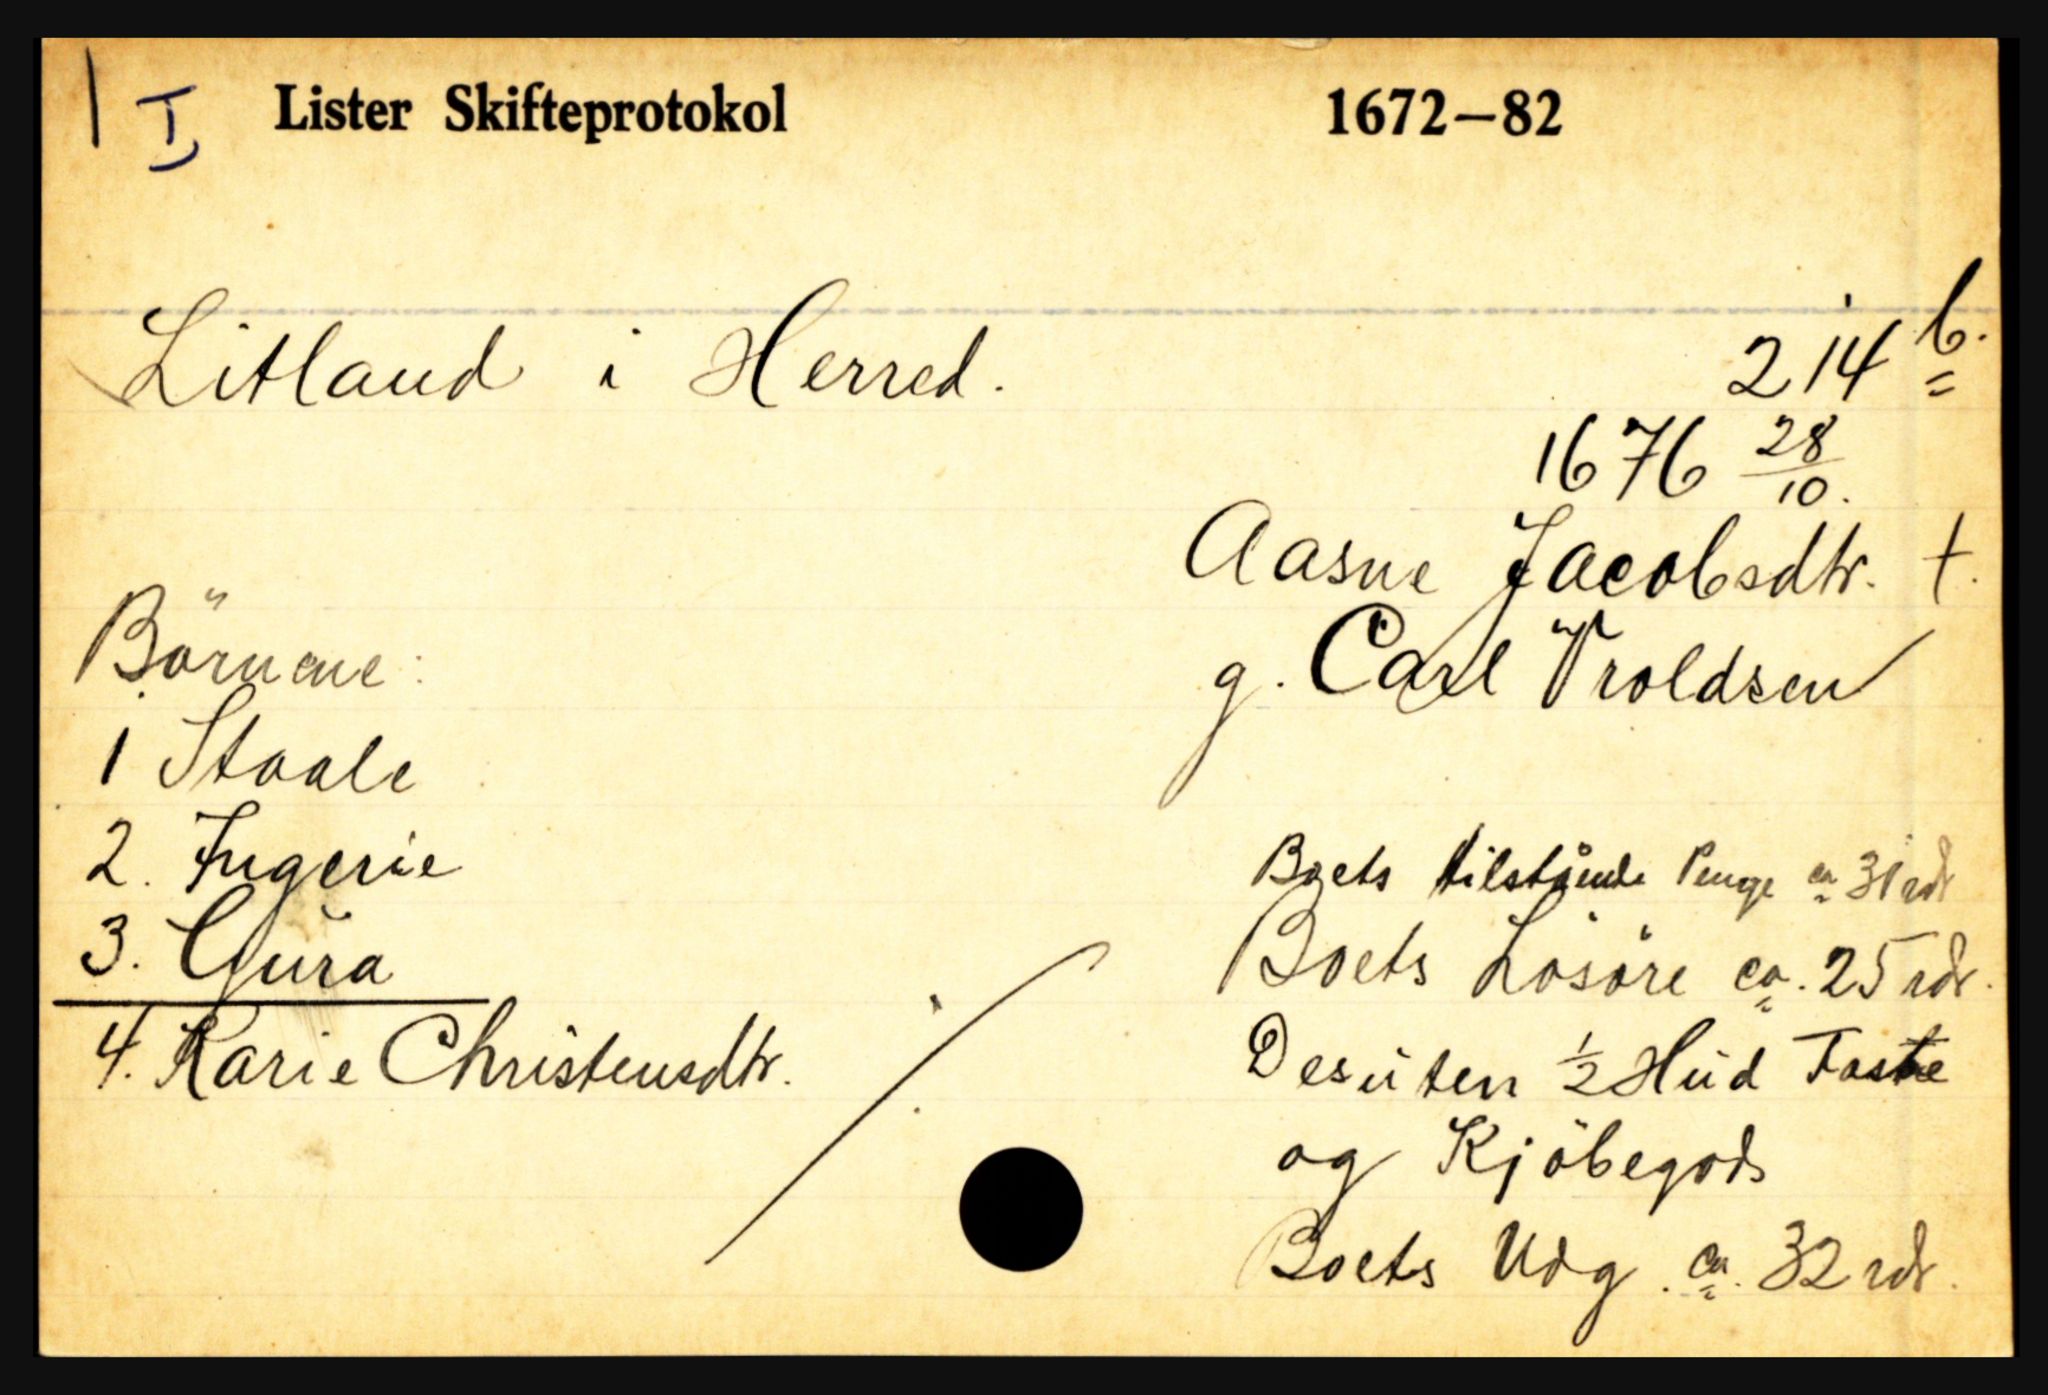 1 I Lister Skifteprotokol 1672—82
Litland i Herred. 214 b.
1676 28/10.
Aasne Jacobsdtr. †.
g. Carl Troldsen
Börnene:
1 Staale
2. Ingerie
3. Gŭra
4. Karie Christensdtr.
Boets tilstående Penge ca 31 rdr
Boets Lösöre ca. 25 rdr.
Desŭten 1/2 Hŭd Faste
og Kjöbegods
Boets Udg. ca. 32 rdr.